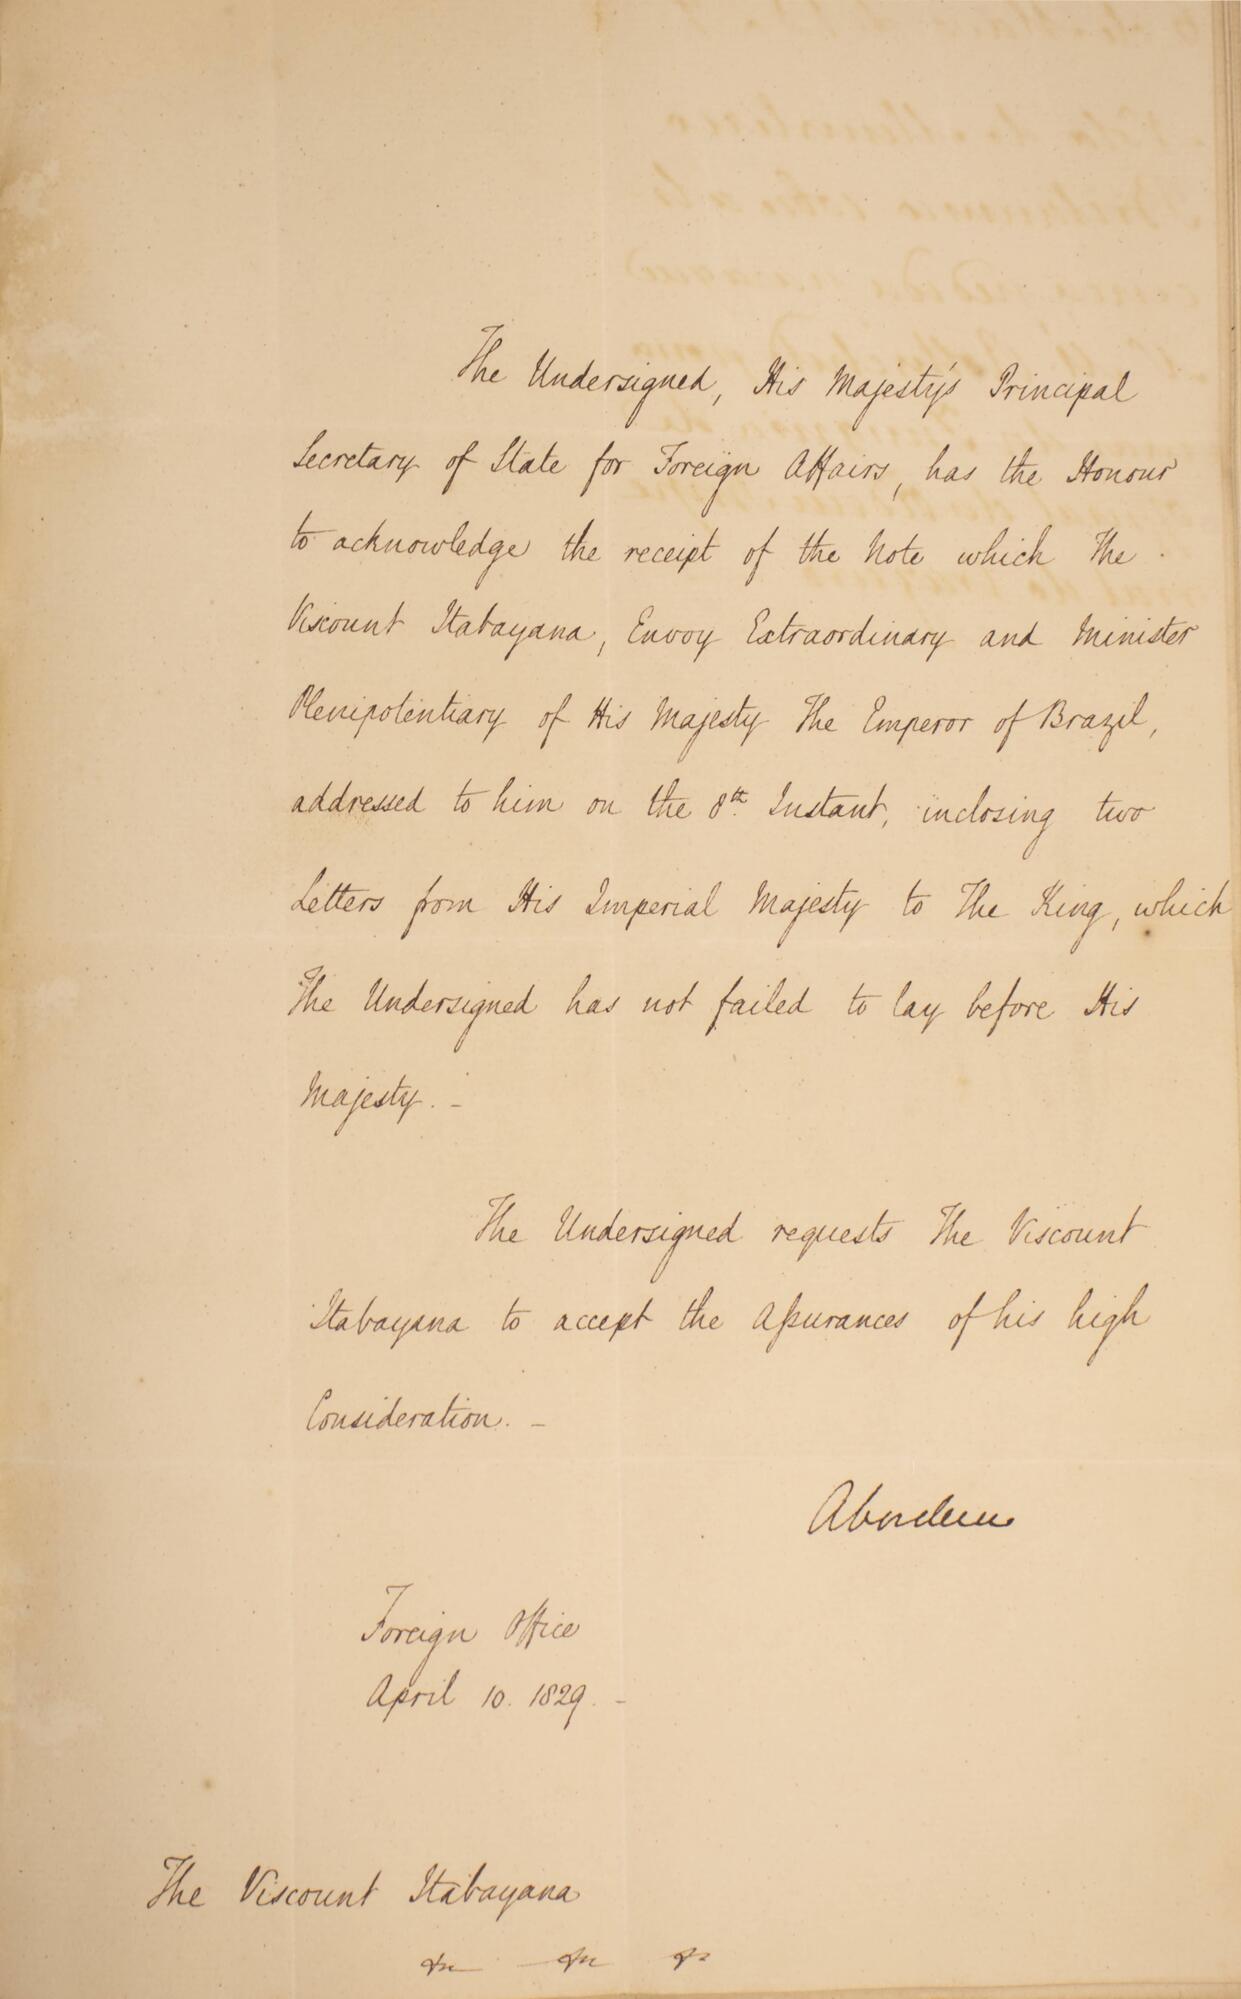 The Undersigned, His Majesty's Principal
Secretary of State for Foreign Affairs, has the Honour
to acknowledge the receipt of the Note which The
Viscount Itabayana, Envoy Extraordinary and Minister
Plenipotentiary of His Majesty The Emperor of Brazil,
addressed to him on the 8th. Instant, inclosing two
Letters from His Imperial Majesty to The King, which
The Undersigned has not failed to lay before His
Majesty. _
The Undersigned requests The Viscount
Itabayana to accept the Aſsurances of his high
Consideration. _
Aberdeen
Foreign Office
April 10. 1829. _
The Viscount Itabayana